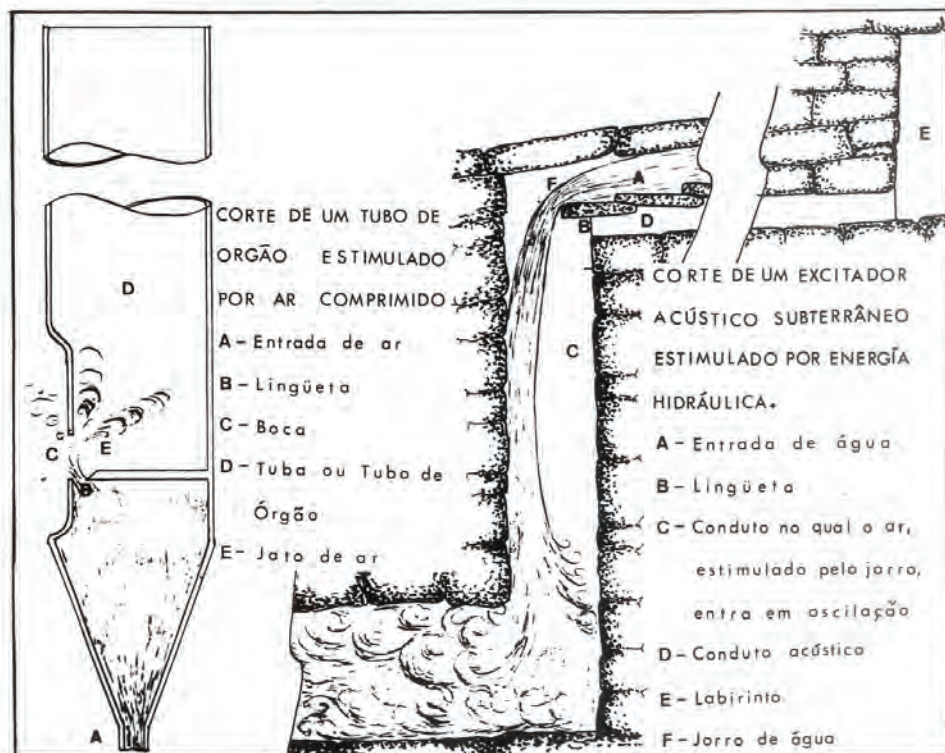 CORTE DE UM TUBO DE
ORGÃO ESTIMULADO
POR AR COMPRIMIDO
A - Entrada de ar
B - Lingüeta
C - Boca
D - Tuba ou Tubo de
Órgão
E - Jato de ar
D
C
E
B
A
F
A
B
D
E
C
CORTE DE UM EXCITADOR
ACÚSTICO SUBTERRÂNEO
ESTIMULADO POR ENERGÍA
HIDRÁULICA.
A - Entrada de água
B - Lingüeta
C - Conduto no qual o ar,
estimulado pelo jorro,
entra em oscilação
D - Conduto acústico
E - Labirinto
F - Jorro de água